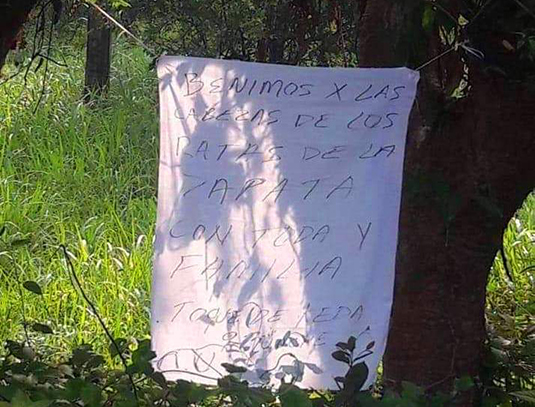 BENIMOS X LAS
CABEZAS DE LOS
RATAS DE LA
ZAPATA
CON TODA Y
FAMILIA
TOQUE DE KEDA